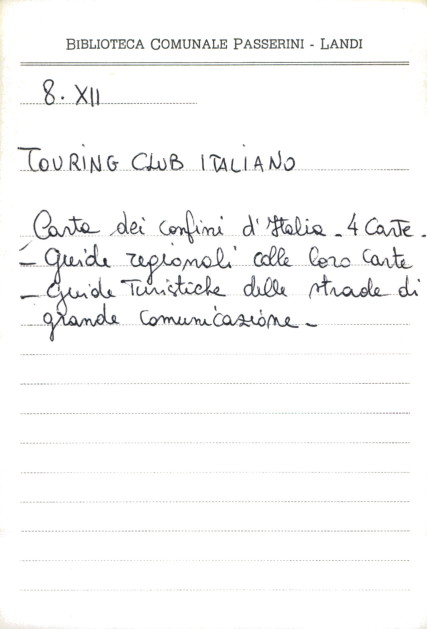 BIBLIOTECA COMUNALE PASSERINI - LANDI
8. XII
TOURING CLUB ITALIANO
Carta dei confini d'Italia - 4 Carte -
- Guide regionali colle loro Carte
- Guide Turistiche delle strade di
grande comunicazione -